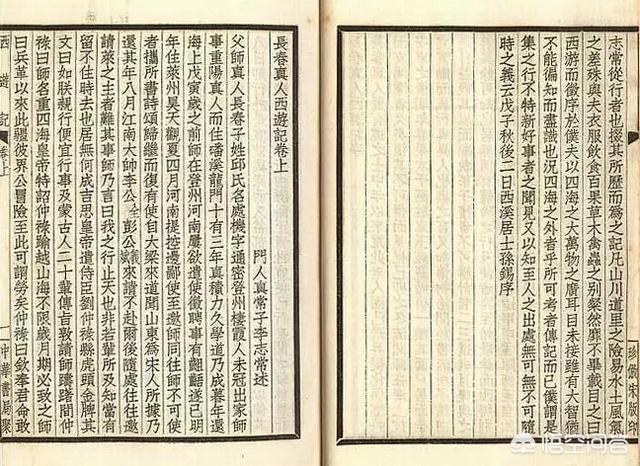 珍倣宋版印
志常從行者也掇其所歷而爲之記凡山川道里之險易水土風氣
之差殊與夫衣服飲食百果草木禽蟲之別粲然靡不畢載目之曰
西游而徵序於僕夫以四海之大萬物之廣耳目未接雖有大智猶
不能徧知而盡識也況四海之外者乎所可考者傳記而已僕謂是
集之行不特新好事者之聞見又以知至人之出處無可無不可隨
時之義云戊子秋後二日西溪居士孫錫序
長春真人西遊記卷上
門人真常子李志常述
父師真人長春子姓邱氏名處機字通密登州棲霞人未冠出家師
事重陽真人而住磻溪龍門十有三年真積力久學道乃成暮年還
海上戊寅歲之前師在登州河南屢欲遣使徵聘事有齟齬遂已明
年住萊州昊天觀夏四月河南提控邊鄙使至邀師同往師不可使
者攜所書詩頌歸繼而復有使自大梁來道聞山東爲宋人所據乃
還其年八月江南大帥李公全彭公義斌來請不赴爾後隨處往往邀
請萊之主者難其事師乃言曰我之行止天也非若輩所及知當有
留不住時去也居無何成吉思皇帝遣侍臣劉仲祿縣虎頭金牌其
文曰如朕親行便宜行事及蒙古人二十輩傳旨敦請師躊躇間仲
祿曰師名重四海皇帝特詔仲祿踰越山海不限歲月期必致之師
曰兵革以來此疆彼界公冒險至此可謂勞矣仲祿曰欽奉君命敢
西遊記 卷上 一 中華書局聚
悟空问答